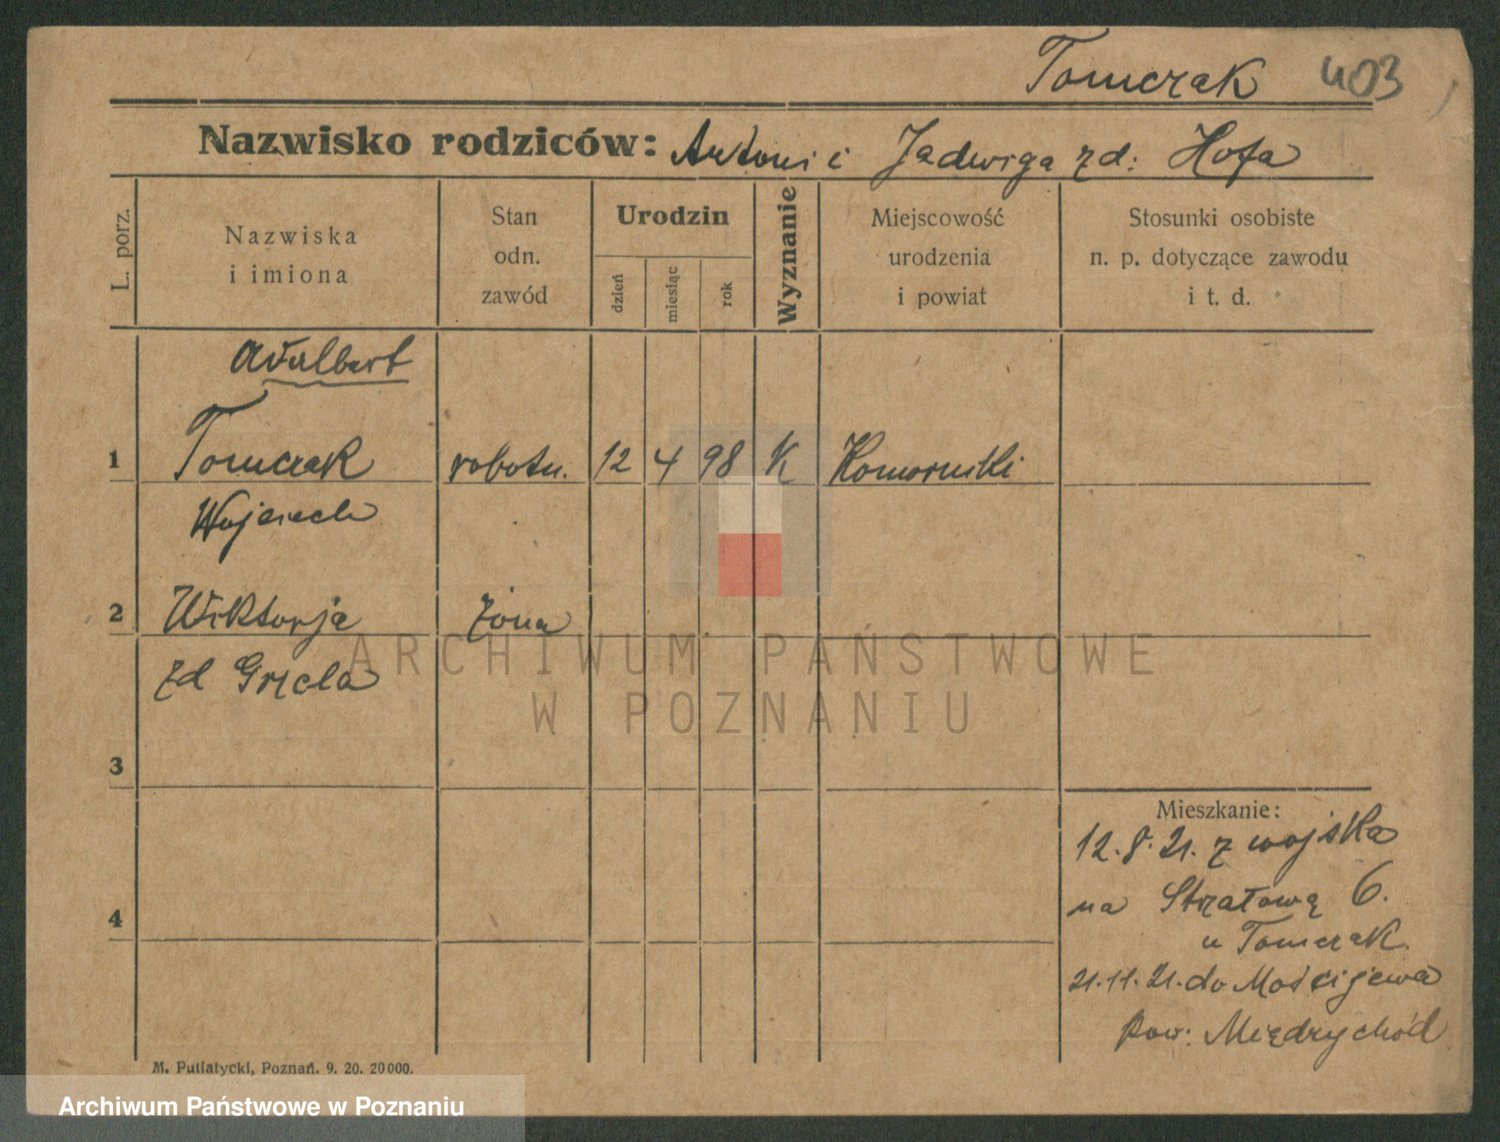 Tomczak 403
Nazwisko rodziców: Antoni i Jadwiga zd: Hofa
L. porz.
Nazwiska
i imiona
Stan
odn.
zawód
Urodzin
dzień
miesiąc
rok
Wyznanie
Miejscowość
urodzenia
i powiat
Stosunki osobiste
n. p. dotyczące zawodu
i t. d.
Adalbert
1 Tomczak robotn. 12 4 98 K Komorniki
Wojciech
2 Wiktorja żona
zd Grzela
3
4
Mieszkanie:
12.8.21. z wojska
na Strzałową 6.
u Tomczak.
21.11.21. do Mościjewa
pow: Międzychód
M. Putiatycki, Poznań. 9. 20. 20000.
ARCHIWUM PAŃSTWOWE
W POZNANIU
Archiwum Państwowe w Poznaniu